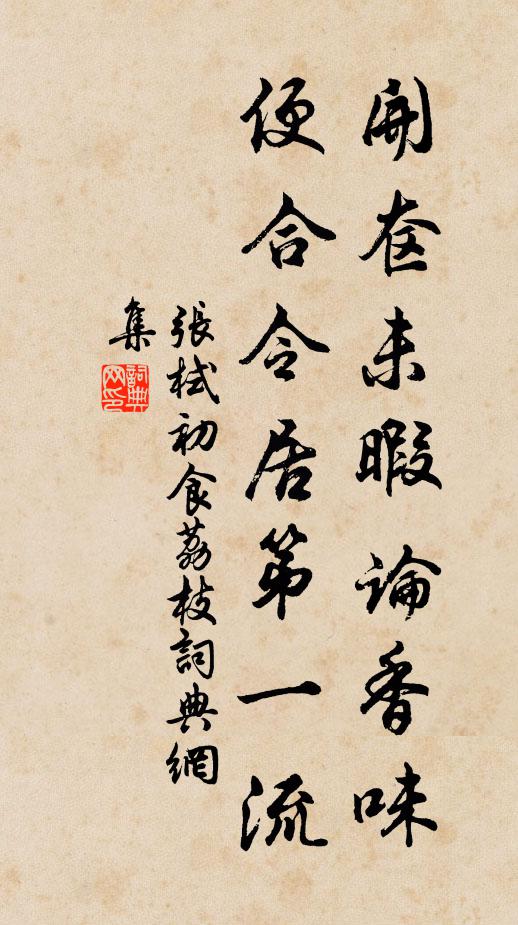 開奁未暇論香味
便合令居第一流
張栻初食荔枝詞典網
集
詞典网印